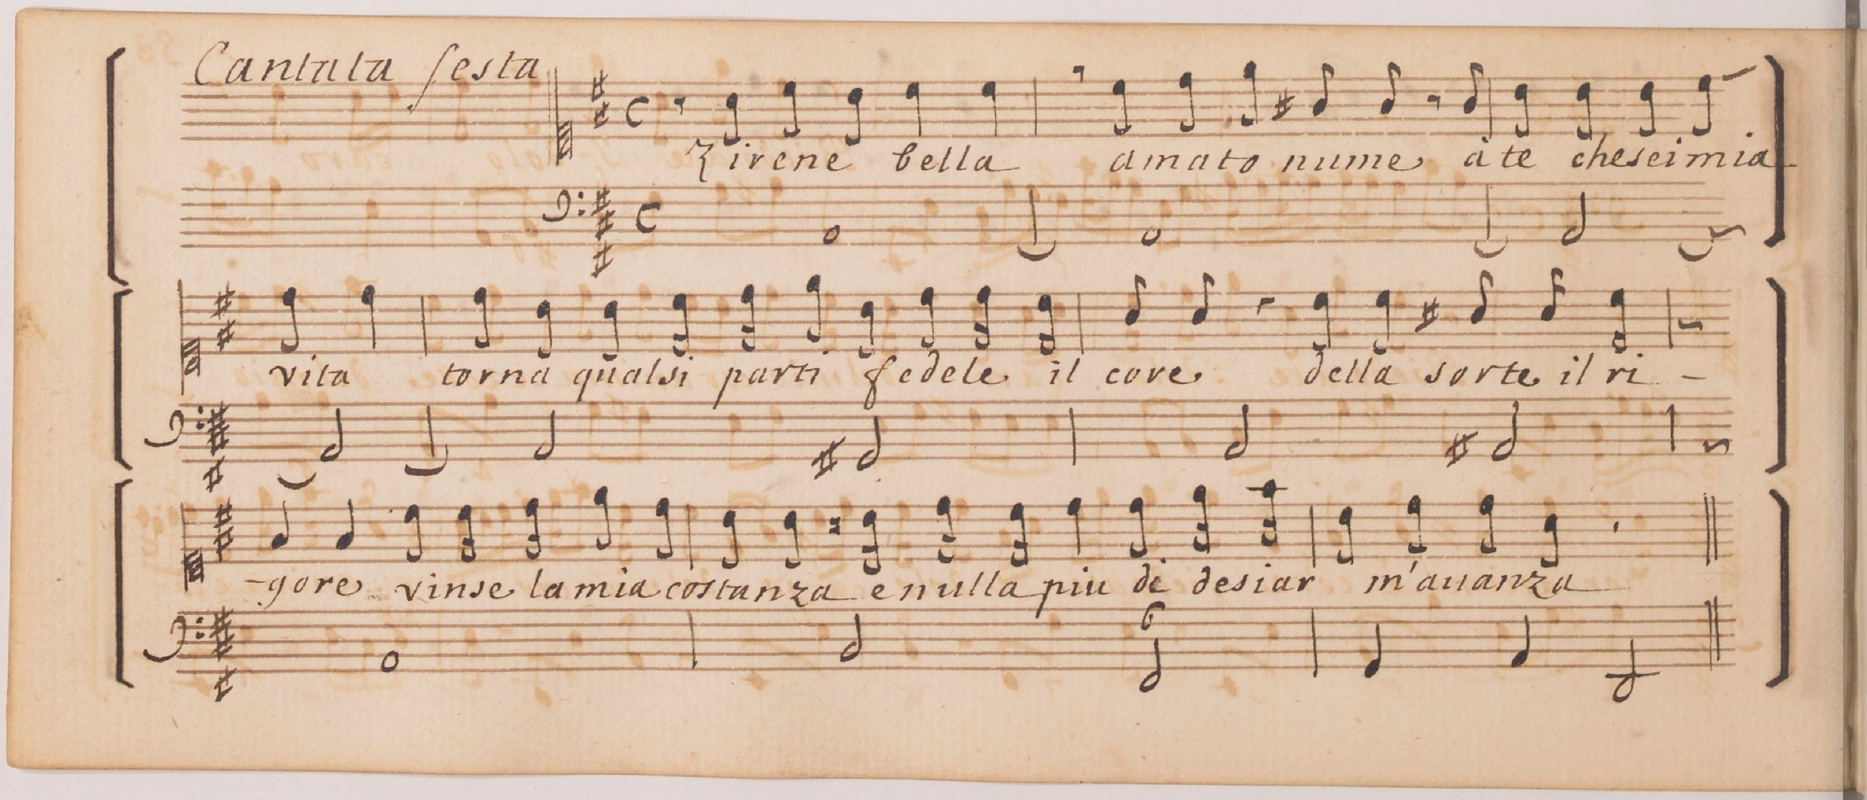 Cantata sesta
Zirene bella amato nume à te che sei mia
vita torna qual si parti fedele il core della sorte il ri-
-gore vinse la mia costanza e nulla piu di desiar m'auanza
6